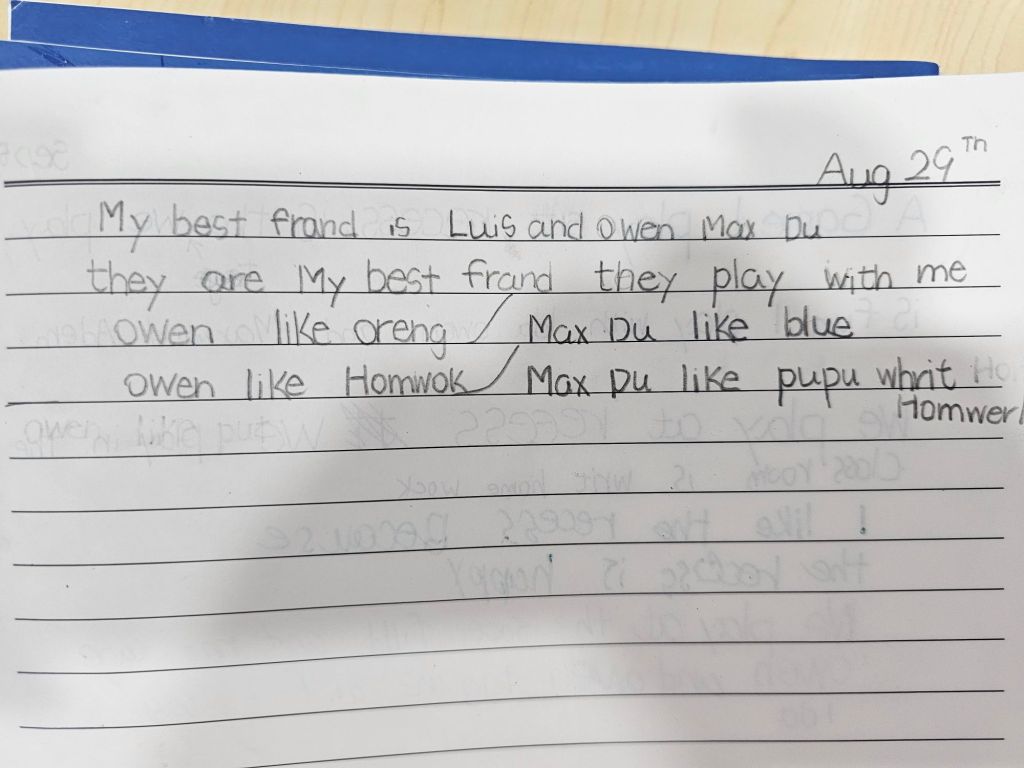 Aug 29Th
My best frand is Luis and owen Max Du
they are My best frand they play with me
owen like oreng / Max Du like blue
owen like Homwok / Max Du like pupu whrit
Homwer